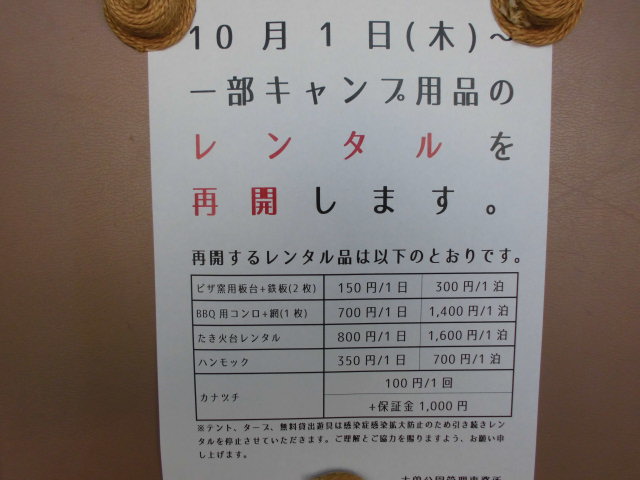 10月1日(木)~
一部キャンプ用品の
レンタルを
再開します。
再開するレンタル品は以下のとおりです。
ピザ窯用板台+鉄板(2枚) 150円/1日 300円/1泊
BBQ用コンロ+網(1枚) 700円/1日 1,400円/1泊
たき火台レンタル 800円/1日 1,600円/1泊
ハンモック 350円/1日 700円/1泊
カナヅチ 100円/1回
+保証金1,000円
※テント、タープ、無料貸出遊具は感染症感染拡大防止のため引き続きレン
タルを停止させていただきます。ご理解とご協力を賜りますよう、お願い申
し上げます。